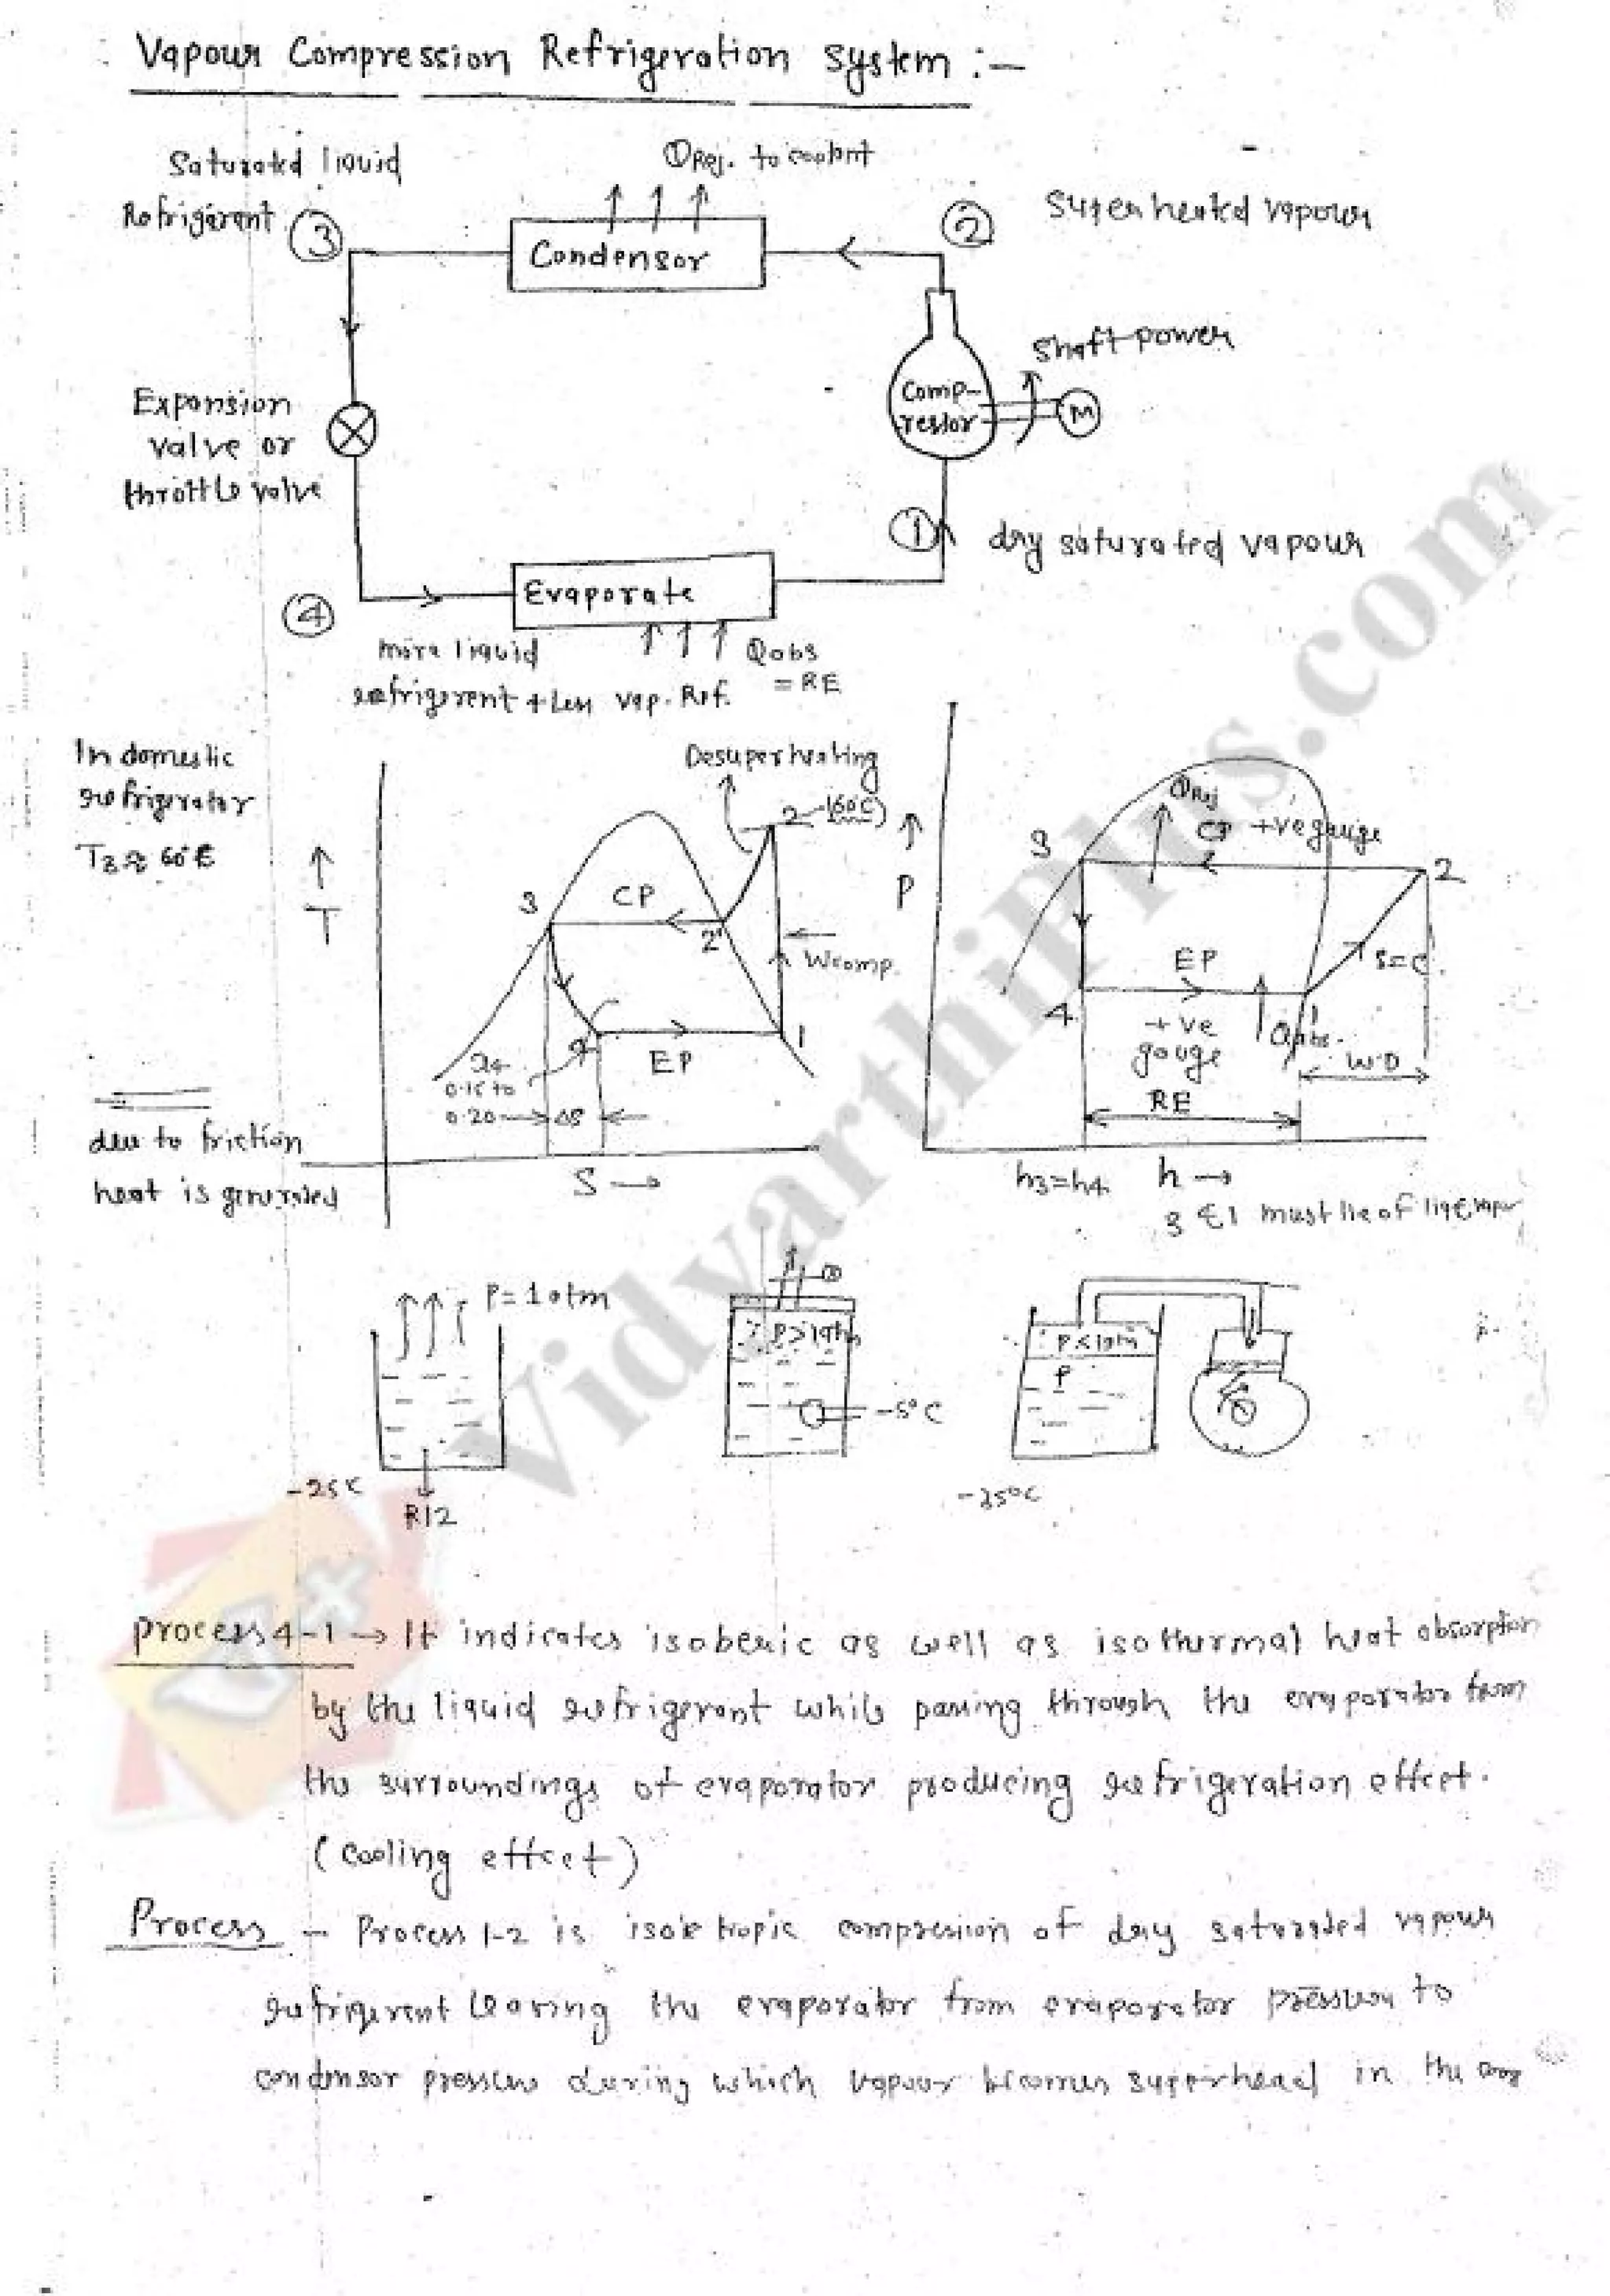 Vapour Compression Refrigeration System :-
Saturated liquid
Refrigerant
3
QRej. to coolant
Condensor
2
Superheated vapour
Shaft power
Comp-
ressor
M
Expansion
valve or
throttle valve
1
dry saturated vapour
4
Evaporate
more liquid
refrigerent + Less vap. Ref.
Qabs
= RE
In domestic
refrigerator
T3 ≈ 60°C
T
Desuperheating
2
3
CP
2'
Wcomp.
4
EP
1
x4
0.15 to
0.20
ΔS
S →
due to friction
heat is generated
P
QRej
3
CP +ve gauge
2
EP
S=C
4
+ve
gouge
Qabs.
1
W.D
RE
h3=h4
h →
3 & 1 must lie of liq & vapor
P= 1 atm
-25°C
R12
P>1atm
-5°C
P<1atm
P
process 4-1 → It indicates isoberic as well as isothermal heat absorption
by the liquid refrigerant while passing through the evaporator from
the surroundings of evaporator producing refrigeration effect.
(Cooling effect)
Process - Process 1-2 is isentropic compression of dry saturated vapour
refrigerent leaving the evaporator from evaporator pressure to
condensor pressure during which vapour becomes superhead in the
VidyarthiPlus.com